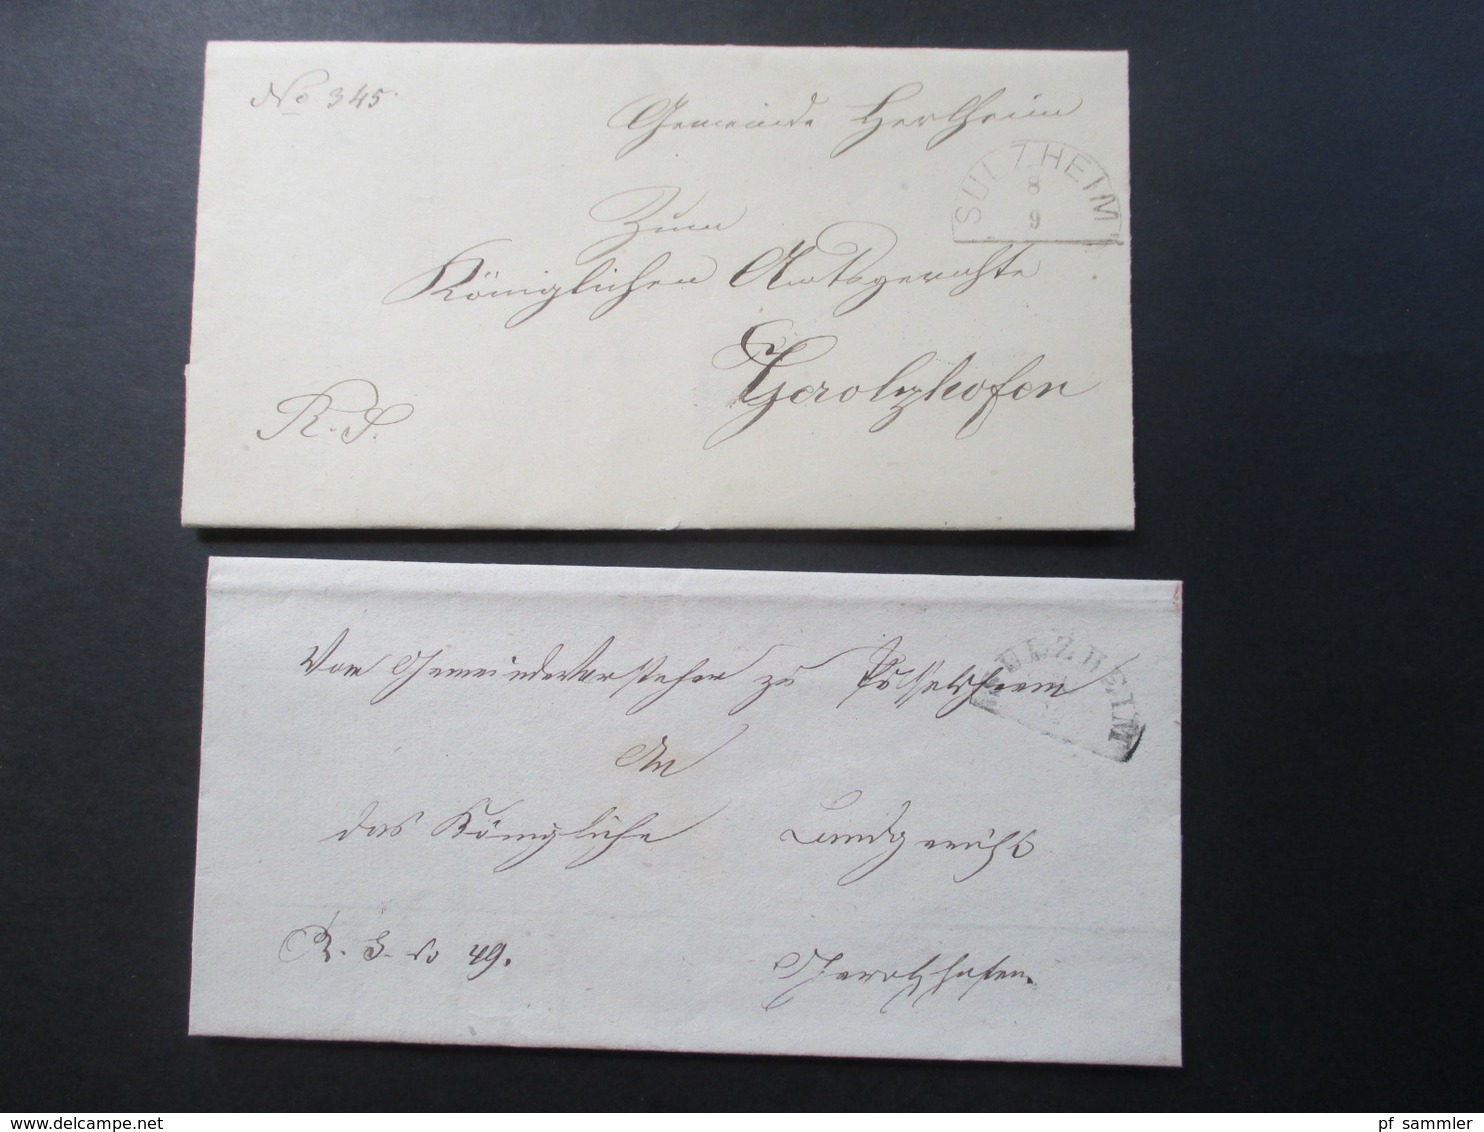 No 345.
Gemeinde Herlheim
SULZHEIM
8
9
Zum
Königlichen Amtsgerichte
Gerolzhofen
R. S.
Vom Gemeindevorsteher zu
SULZHEIM
An
das Königliche Landgericht
R. S. No 49.
Gerolzhofen.
www.delcampe.net
pf_sammler